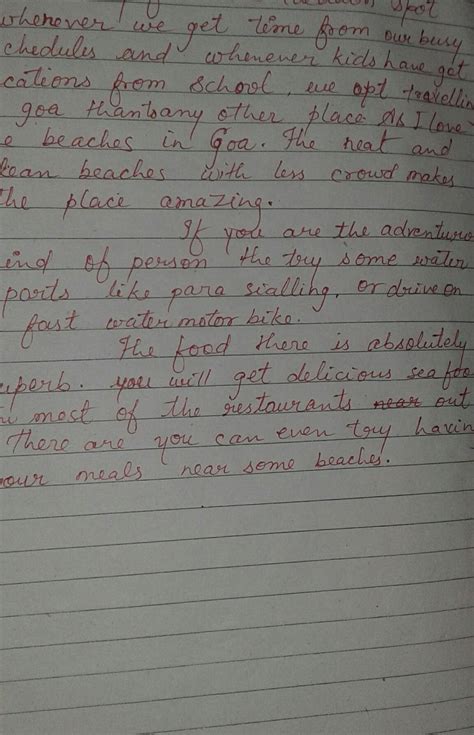 spot
whenever we get time from our busy
chedules and whenever kids have get
cations from school, we opt travellin
goa than any other place As I love
e beaches in Goa. The neat and
lean beaches with less crowd makes
the place amazing.
If you are the adventure
kind of person the try some water
ports like para sialling, or drive on
fast water motor bike.
The food there is absolutely
uperb. you will get delicious sea foo
in most of the restaurants near out
There are you can even try havin
your meals near some beaches.